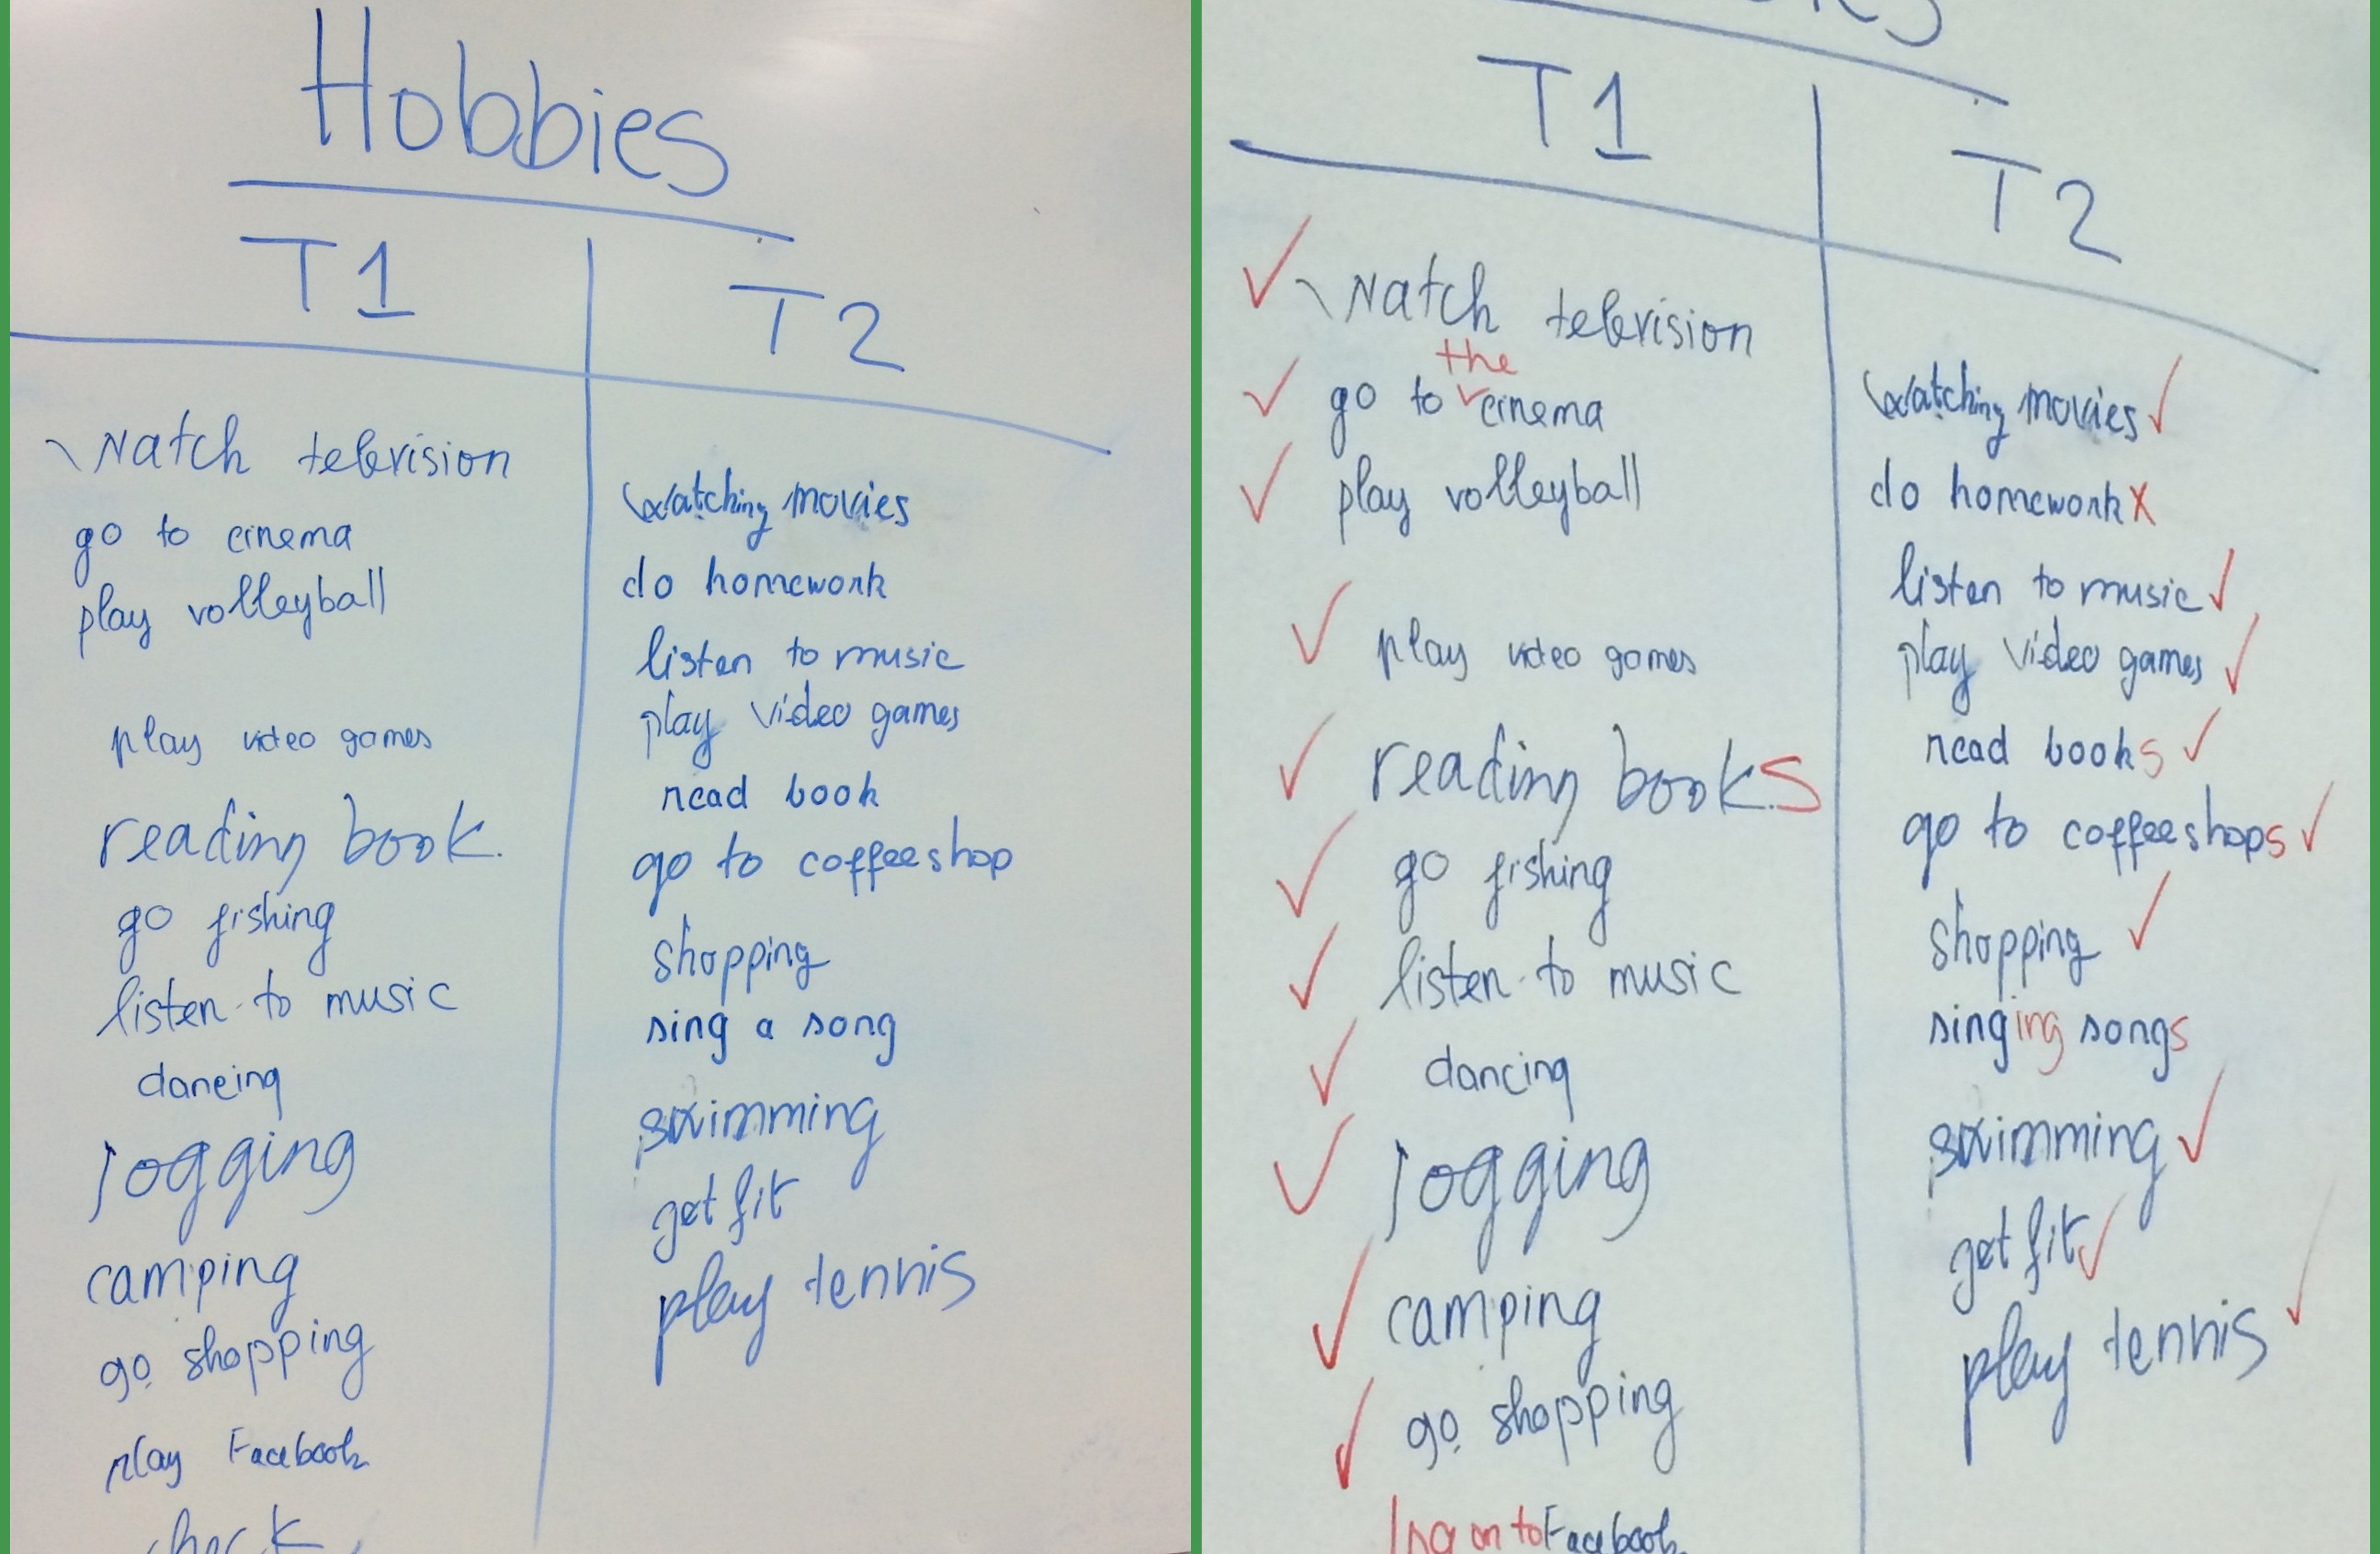 Hobbies
T1
T2
Watch television
go to cinema
play volleyball
play video games
reading book.
go fishing
listen to music
dancing
Jogging
camping
go shopping
play Facebook
check
watching movies
do homework
listen to music
play video games
read book
go to coffeeshop
shopping
sing a song
swimming
get fit
play tennis
T1
T2
Watch television
the
go to cinema
play volleyball
play video games
reading books
go fishing
listen to music
dancing
Jogging
camping
go shopping
log on to Facebook
watching movies
do homework X
listen to music
play video games
read books
go to coffeeshops
shopping
singing songs
swimming
get fit
play tennis